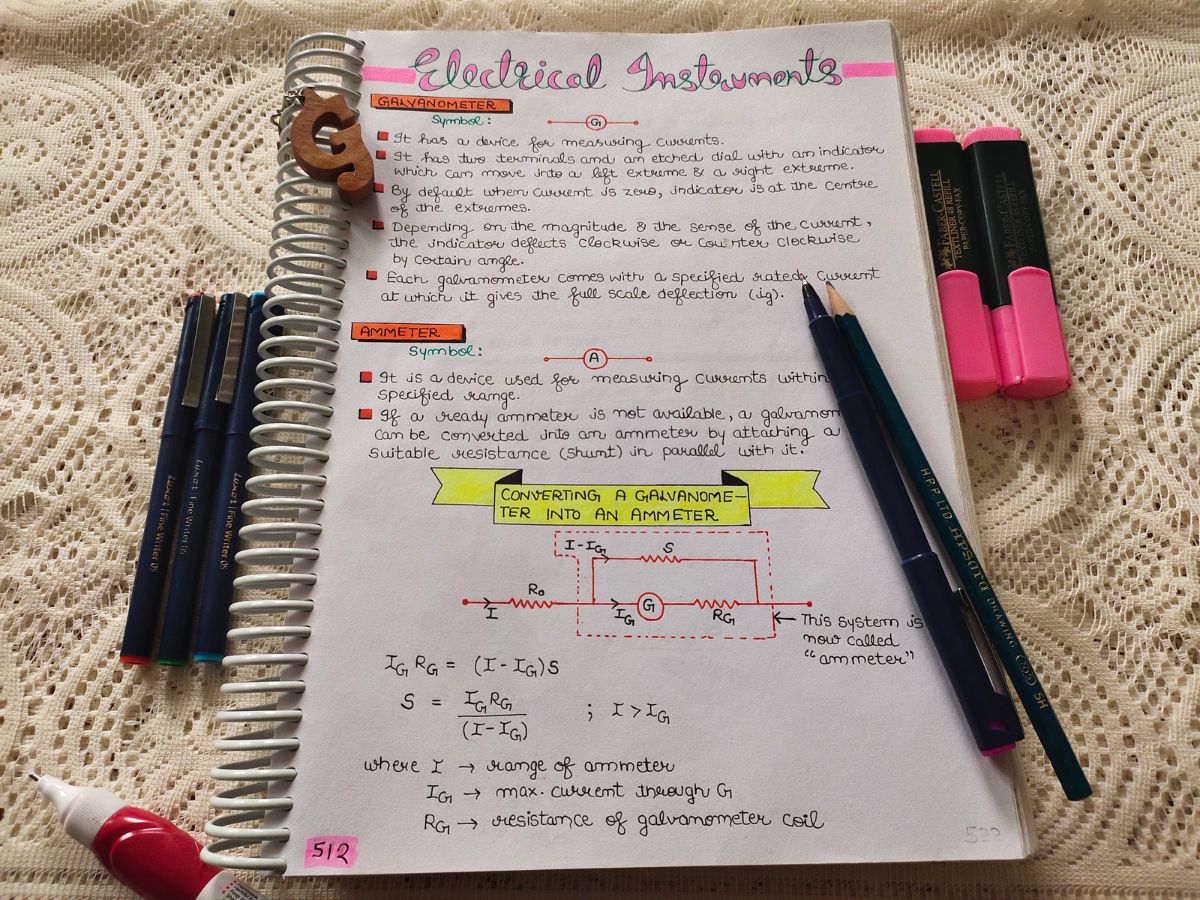 Electrical Instruments
GALVANOMETER
Symbol:
G
It has a device for measuring currents.
It has two terminals and an etched dial with an indicator
which can move into a left extreme & a right extreme.
By default when current is zero, indicator is at the centre
of the extremes.
Depending on the magnitude & the sense of the current,
the indicator deflects clockwise or counter clockwise
by certain angle.
Each galvanometer comes with a specified rated current
at which it gives the full scale deflection (ig).
AMMETER
Symbol:
A
It is a device used for measuring currents within
specified range.
If a ready ammeter is not available, a galvanom
can be converted into an ammeter by attaching a
suitable resistance (shunt) in parallel with it.
CONVERTING A GALVANOME-
TER INTO AN AMMETER
I-IG
S
R₀
I
IG
G
RG
This system is
now called
"ammeter"
IG RG = (I-IG)S
S = IG RG / (I-IG) ; I > IG
where I → range of ammeter
IG → max. current through G
RG → resistance of galvanometer coil
512
G
FABER-CASTELL
TEXTLINER 48 REFILL
PAPER·COPY·FAX
FABER-CASTELL
TEXTLINER 48 REFILL
PAPER·COPY·FAX
Luxor | Fine Writer 05
Luxor | Fine Writer 05
Luxor | Fine Writer 05
H.P.P. LTD. Apsara DRAWING 5H